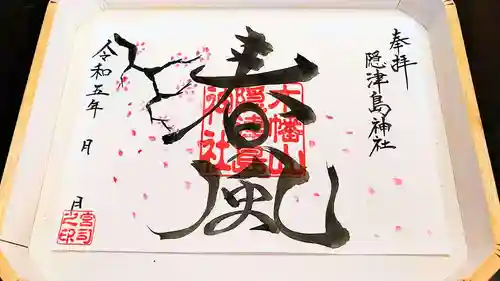 奉拝
隠津島神社
春風
木幡山
隠津島
御社
令和五年 月 日
宮司
之印